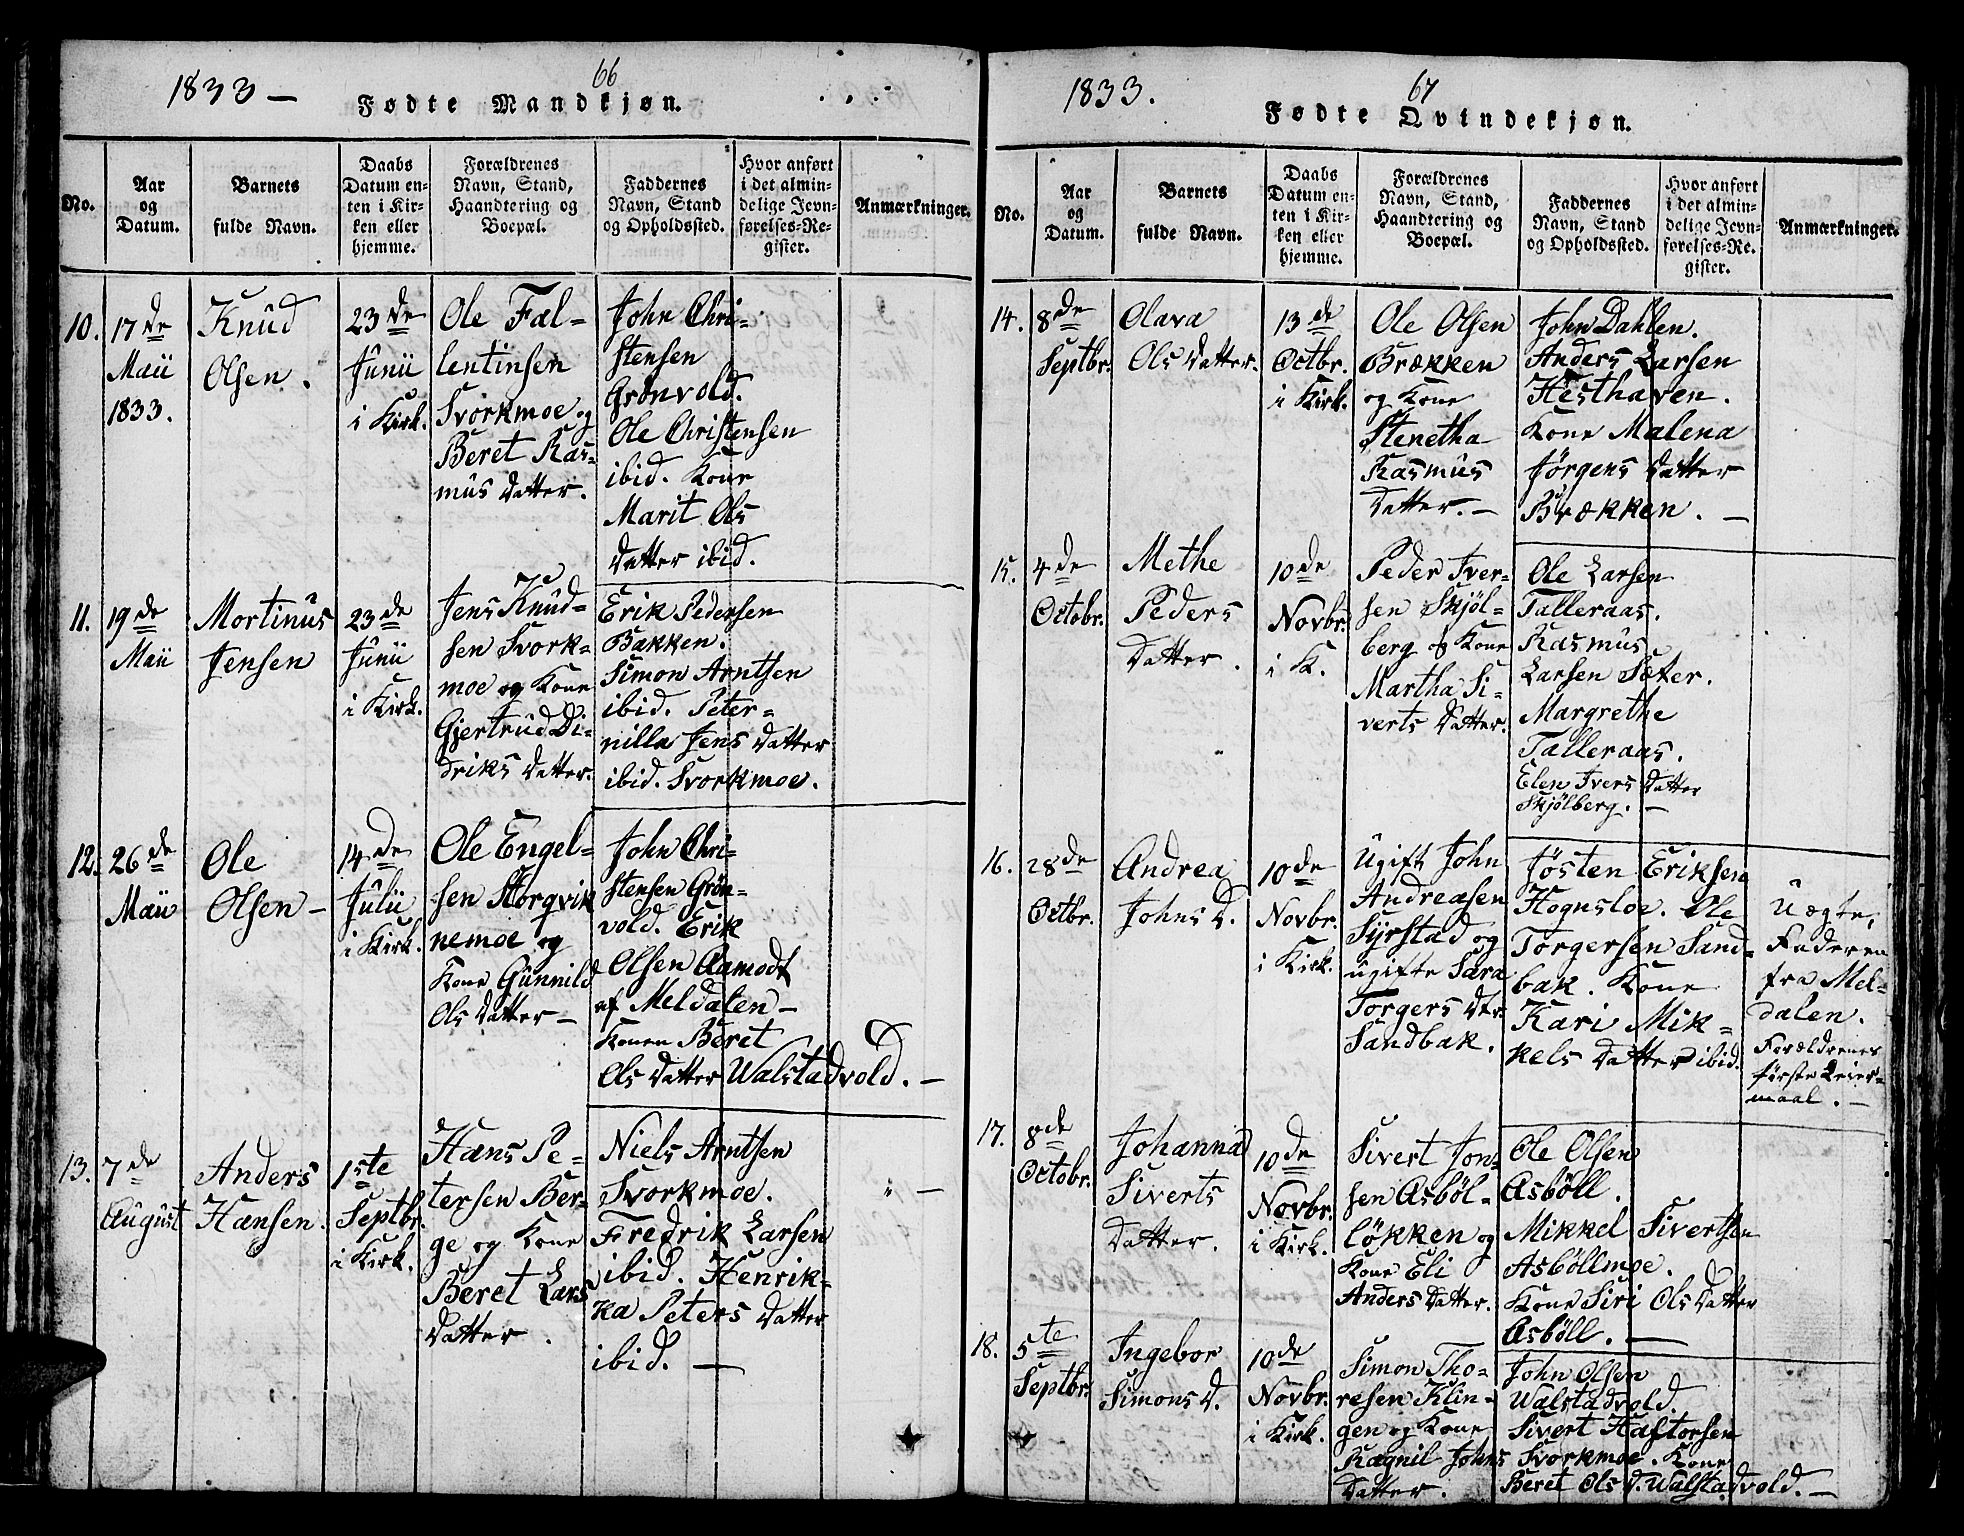 1833 —
66
Fødte Mandkjøn.
No.
Aar
og
Datum.
Barnets
fulde Navn.
Daabs
Datum en-
ten i Kir-
ken eller
hjemme.
Forældrenes
Navn, Stand,
Haandtering og
Boepæl.
Faddernes
Navn, Stand
og Opholdssted.
Hvor anført
i det almin-
delige Jevn-
førelses-Re-
gister.
Anmærkninger.
10.
17de
Maii
1833.
Knud
Olsen.
23de
Junii
i Kirk.
Ole Fal-
lentinsen
Svorkmoe og
Beret Ras-
mus Datter.
John Chri-
stensen
Grönvold.
Ole Christensen
ibid. Kone
Marit Ols
Datter ibid.
11.
19de
Maii
Mortinus
Jensen
23de
Junii
i Kirk.
Jens Knud-
sen Svork-
moe og Kone
Gjertrud Di-
driks Datter.
Erik Pedersen
Bakken.
Simon Arntsen
ibid. Peter-
nilla Jens Datter
ibid. Svorkmoe.
12.
26de
Maii
Ole
Olsen —
14de
Julii
i Kirk.
Ole Engel-
sen Storqvik
nemoe og
Kone Gunnild
Ols Datter —
John Chri-
stensen Grön-
vold. Erik
Olsen Aamodt
af Meldalen —
Konen Beret
Ols Datter Walstadvold. —
13.
7de
August
Anders
Hansen.
1ste
Septbr.
i Kirk.
Hans Pe-
tersen Ber-
ge og Kone
Beret Lars
Datter.
Niels Arntsen
Svorkmoe.
Fredrik Larsen
ibid. Henrik-
ka Peters Datter
ibid. —
" —
1833.
67
Fødte Qvindekjøn.
No.
Aar
og
Datum.
Barnets
fulde Navn.
Daabs
Datum en-
ten i Kir-
ken eller
hjemme.
Forældrenes
Navn, Stand,
Haandtering og
Boepæl.
Faddernes
Navn, Stand
og Opholdssted.
Hvor anført
i det almin-
delige Jevn-
førelses-Re-
gister.
Anmærkninger.
14.
8de
Septbr.
Olava
Ols Datter.
13de
Octbr.
i Kirk.
Ole Olsen
Brækken
og Kone
Stenetha
Rasmus
Datter. —
John Dahlen.
Anders Larsen
Hesthaven.
Kone Malena
Jörgens Datter
Brækken. —
15.
4de
Octobr.
Methe
Peders
Datter.
10de
Novbr.
i K.
Peder Iver-
sen Skjöl-
berg og Kone
Martha Si-
verts Datter.
Ole Larsen
Talleraas.
Rasmus
Larsen Sæter.
Margrethe
Talleraas.
Elen Ivers Datter
Skjölberg. —
16.
28de
Octbr.
Andrea
Johns D.
10de
Novbr.
i Kirk.
Ugift John
Andreasen
Syrstad og
ugifte Sara
Torgers Dtr.
Sandbak.
Jösten Eriksen
Hognsloe. Ole
Torgersen Sand-
bak. Kone
Kari Mik-
kels Datter ibid.
Uægte,
Faderen
fra Mel-
dalen.
Forældrenes
første Leier-
maal. —
17.
8de
Octobr.
Johanna
Siverts
Datter.
10de
Novbr.
i Kirk.
Sivert Jon-
sen Asböl-
lökken og
Kone Eli
Anders Datter.
Ole Olsen
Asböll.
Mikkel Sivertsen
Asböllmoe.
Kone Siri Ols Datter
Asböll. —
18.
5te
Septbr.
Ingebor
Simons D.
10de
Novbr.
i Kirk.
Simon Tho-
resen Klin-
gen og Kone
Ragnil Johns
Datter.
John Olsen
Walstadvold.
Sivert Haftorsen
Svorkmoe. Kone
Beret Ols D. Walstadvold. —